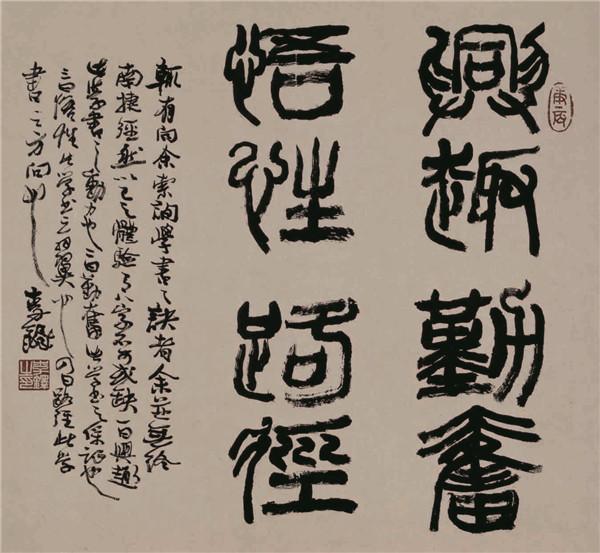 庚辰
興趣勤奮
悟性路徑
輒有向余索詢學書之訣者余並無終
南捷徑然以己之體驗八字不可或缺一曰興趣
此學書之動力也二曰勤奮此学书之保证也
三曰悟性此学书之羽翼也四曰路徑此学
書之方向也
李鐸